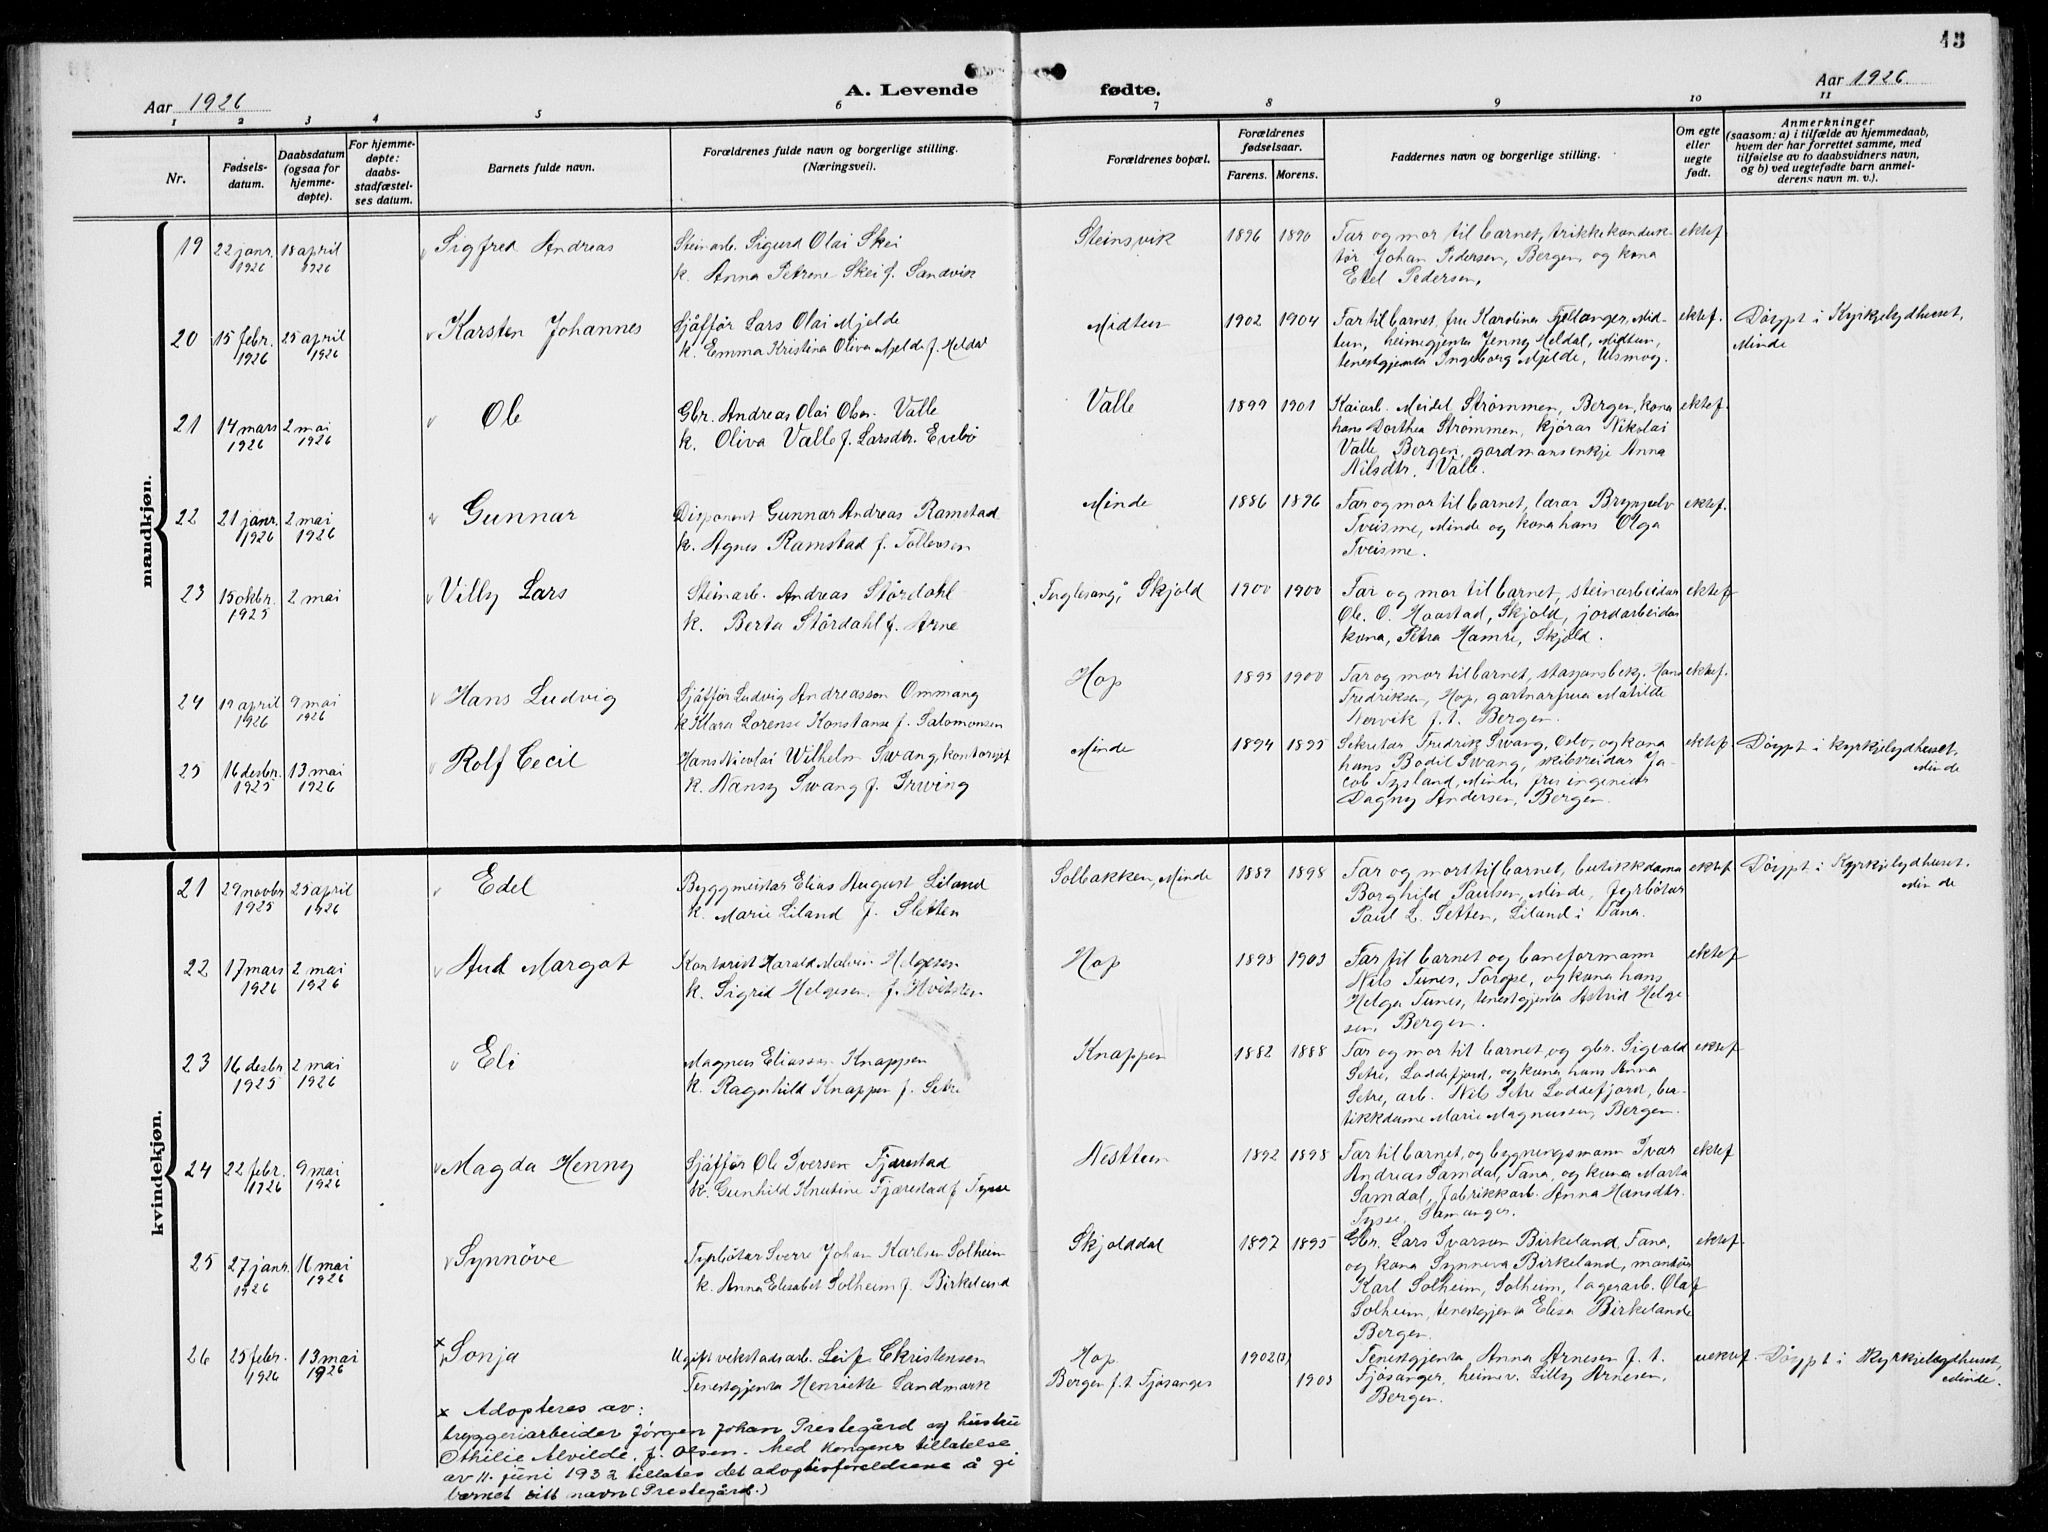 13
Aar 1926
A. Levende fødte.
Aar 1926
1 2 3 4 5 6 7 8 9 10 11
Nr.
Fødsels-
datum.
Daabsdatum
(ogsaa for
hjemme-
døpte).
For hjemme-
døpte:
daabs-
stadfæstel-
ses datum.
Barnets fulde navn.
Forældrenes fulde navn og borgerlige stilling.
(Næringsvei).
Forældrenes bopæl.
Forældrenes
fødselsaar.
Farens. Morens.
Faddernes navn og borgerlige stilling.
Om egte
eller
uegte
født.
Anmerkninger
(saasom: a) i tilfælde av hjemmedaab,
hvem der har forrettet samme, med
tilføielse av to daabsvidners navn,
og b) ved uegtefødte barn anmel-
derens navn m. v.).
mandkjøn.
19
22 janr.
1926
18 april
1926
Sigfred Andreas
Steinarb. Sigurd Olai Skei
k. Anna Petrene Skei f. Sandvik
Steinsvik
1896 1890
Far og mor til barnet, trikkekonduk-
tør Johan Pedersen, Bergen, og kona
Etel Pedersen.
ektef
20
15 febr.
1926
25 april
1926
Karsten Johannes
Sjåffør Lars Olai Mjelde
k. Emma Kristina Oliva Mjelde f. Meldal
Midtun
1902 1904
Far til barnet, fru Karolina Fjeldanger, Mid-
tun, heimegjenta Jenny Meldal, Midtun,
tenestgjenta Ingeborg Mjelde, Ulsmog.
ektef.
Döypt i Kyrkjelydhuset,
Minde
21
14 mars
1926
2 mai
1926
Ole
Gbr. Andreas Olai Olsn. Valle
k. Oliva Valle f. Larsdtr. Evebø
Valle
1899 1901
Kaiarb. Meidel Strømmen, Bergen, kona
hans Dorthea Strømmen, kjørar Nikolai
Valle, Bergen, gardmansenkje Anna
Nilsdtr. Valle.
ektef.
22
21 janr.
1926
2 mai
1926
Gunnar
Disponent Gunnar Andreas Ramstad
k. Agnes Ramstad f. Tollevsen
Minde
1886 1896
Far og mor til barnet, lærar Brynjulv
Tveisme, Minde og kona hans Olga
Tveisme.
ektef.
23
15 okbr.
1925
2 mai
Villy Lars
Steinarb. Andreas Stördahl
k. Berta Stördahl f. Arne
"Fuglesang," Skjold
1900 1900
Far og mor til barnet, steinarbeidar
Ole O. Haastad, Skjold, jordarbeidar
kona, Petra Hamre, Skjold.
ektef
24
19 april
1926
9 mai
1926
Hans Ludvig
Sjåffør Ludvig Andreasson Ommang
k. Klara Lorense Konstanse f. Salomonsen
Hop
1895 1900
Far og mor til barnet, stasjonsbetj. Hans
Fredriksen, Hop, gartnarfrua Matilde
Nervik f. t. Bergen.
ektef.
25
16 desbr.
1925
13 mai
1926
Rolf Cecil
Hans Nicolai Wilhelm Swang kontorsjef
k. Nansy Swang f. Irwing
Minde
1894 1895
Sekretær Fredrik Swang, Oslo, og kona
hans Bodil Swang, skibsreidar Ja-
cob Tysland, Minde, fru ingeniør
Dagny Andersen, Bergen.
ektef.
Döypt i kyrkjelydhuset,
Minde
kvindekjøn.
21
29 novbr
1925
25 april
1926
Edel
Byggmeistar Elias August Liland
k. Marie Liland f. Sletten
Solbakken, Minde
1889 1898
Far og mor til barnet, butikkdama
Borghild Paulsen, Minde, fyrbøtar
Paul L. Setten, Liland i Fana.
ektef
Döypt i Kyrkjelydhuset.
Minde
22
17 mars
1926
2 mai
1926
Aud Margot
Kontorist Harald Malvin Helgesen
k. Sigrid Helgesen f. Hvitsten
Hop
1898 1903
Far til barnet og baneformann
Nils Tunes, Torpe, og kona hans
Helga Tunes, tenestgjenta Astrid Helge-
sen, Bergen.
ektef
23
16 desbr
1925
2 mai
1926
Eli
Magnus Eliassen Knappen
k. Ragnhild Knappen f. Setre
Knappen
1882 1888
Far og mor til barnet, og gbr. Sigvald
Setre, Loddefjord, og kona hans Anna
Setre, arb. Nils Setre Loddefjord, bu-
tikkdame Marie Magnussen, Bergen.
ektef
24
22 febr.
1926
9 mai
1926
Magda Henny
Sjåffør Ole Iversen Fjærestad
k. Gunhild Knutine Fjærestad f. Tysse
Nesttun
1892 1898
Far til barnet, og bygningsmann Ivar
Andreas Samdal, Fana, og kona Marta
Samdal, fabrikkarb. Anna Hansdtr.
Tysse, Samanger.
ektef
25
27 janr.
1926
16 mai
1926
Synnöve
Fyrbötar Sverre Johan Karlsen Solheim
k. Anna Elisabet Solheim f. Birkeland
Skjolddal
1897 1895
Gbr. Lars Ivarson Birkeland, Fana,
og kona Synneva Birkeland, montör
Karl Solheim, Solheim, lagerarb. Olaf
Solheim, tenestgjenta Elisa Birkeland
Bergen.
ektef.
26
25 febr.
1926
13 mai
1926
× Sonja
Ugift vekstadsarb. Leif Christensen
Tenestgjenta Henriette Landmark
Hop
Bergen f. t. Fjøsanger
1902(3)
1903
Tenestgjenta Anna Arnesen f. t.
Fjøsanger, heimev. Lilly Arnesen,
Bergen.
uektef.
Döypt i Kyrkjelydhuset,
Minde.
× Adopteres av:
bryggeriarbeider Jörgen Johan Prestegård og hustru
Othilie Alvilde, f. Olsen. Med Kongens tillatelse
av 11. juni 1932 tillates det adoptivforeldrene å gi
barnet sitt navn (Prestegård.)